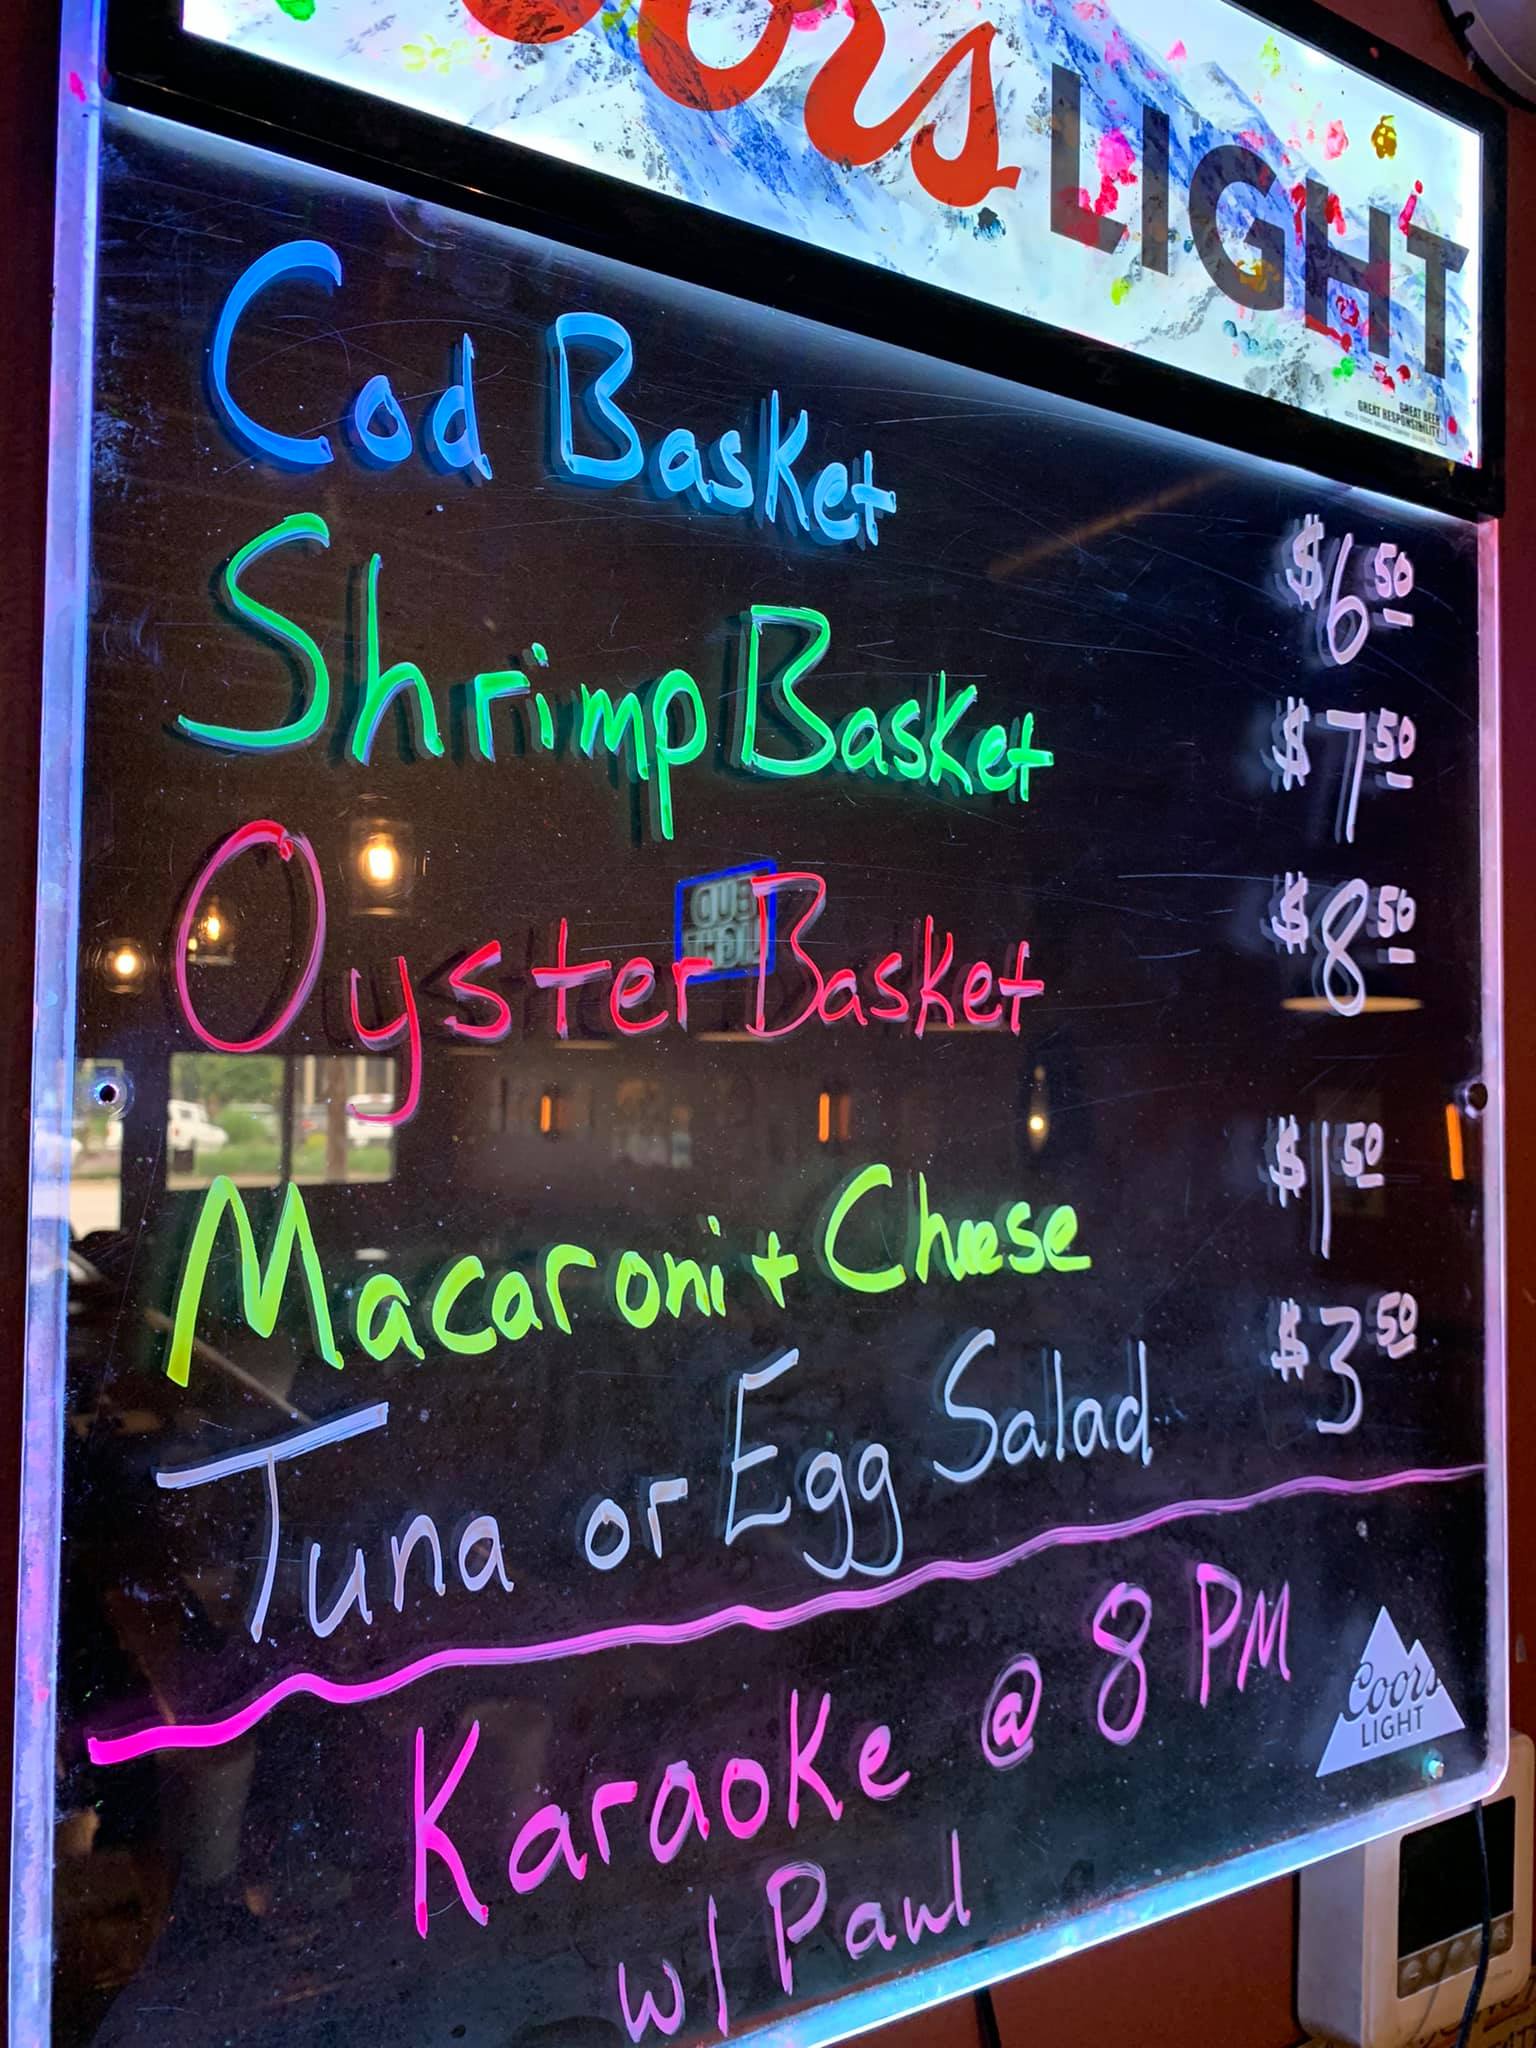 Coors LIGHT
GREAT BEER
GREAT RESPONSIBILITY
Cod Basket $6.50
Shrimp Basket $7.50
Oyster Basket $8.50
Macaroni + Cheese $1.50
Tuna or Egg Salad $3.50
Karaoke @ 8 PM
w/ Paul
Coors
LIGHT